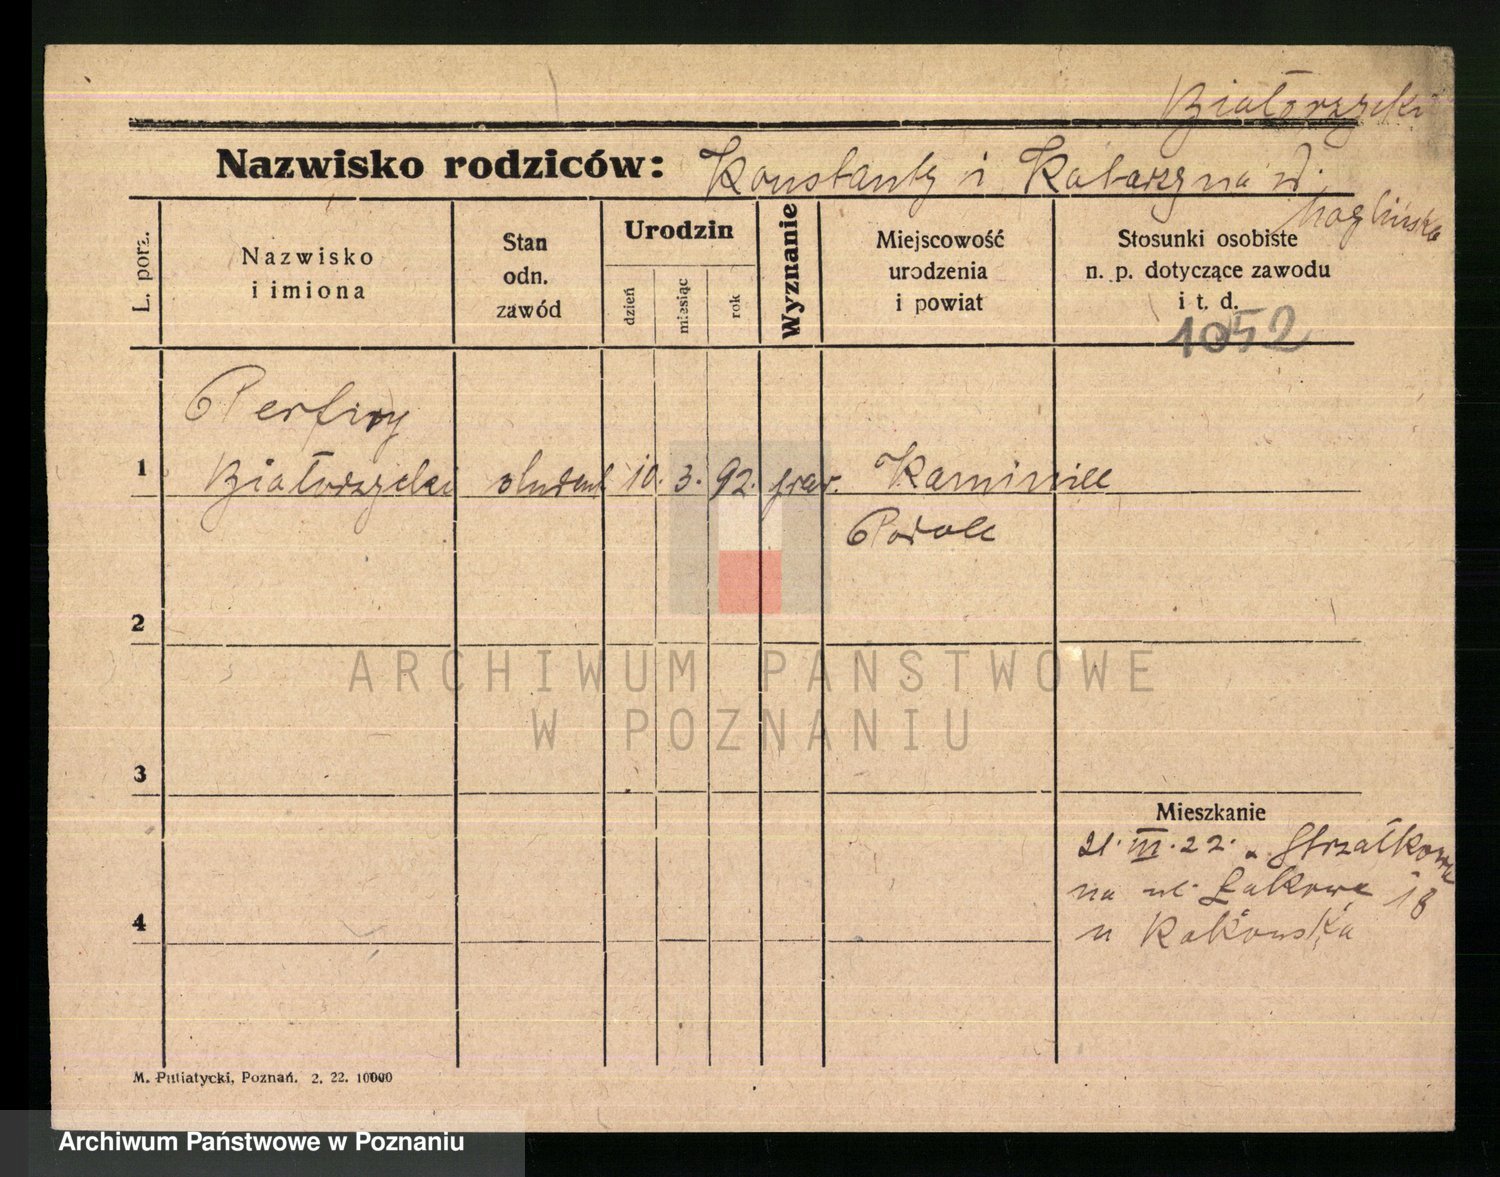 Białorzycki
Nazwisko rodziców: Konstanty i Katarzyna d.
Moglińska
L. porz.
Nazwisko
i imiona
Stan
odn.
zawód
Urodzin
dzień
miesiąc
rok
Wyznanie
Miejscowość
urodzenia
i powiat
Stosunki osobiste
n. p. dotyczące zawodu
i t. d.
1052
Perfiry
1 student 10. 3. 92. praw.
2
3
4
Mieszkanie
21. III. 22. Strzałkowa
na ul. Łąkowę 18
u Rakowska
M. Putiatycki, Poznań. 2. 22. 10000
ARCHIWUM PAŃSTWOWE
W POZNANIU
Archiwum Państwowe w Poznaniu